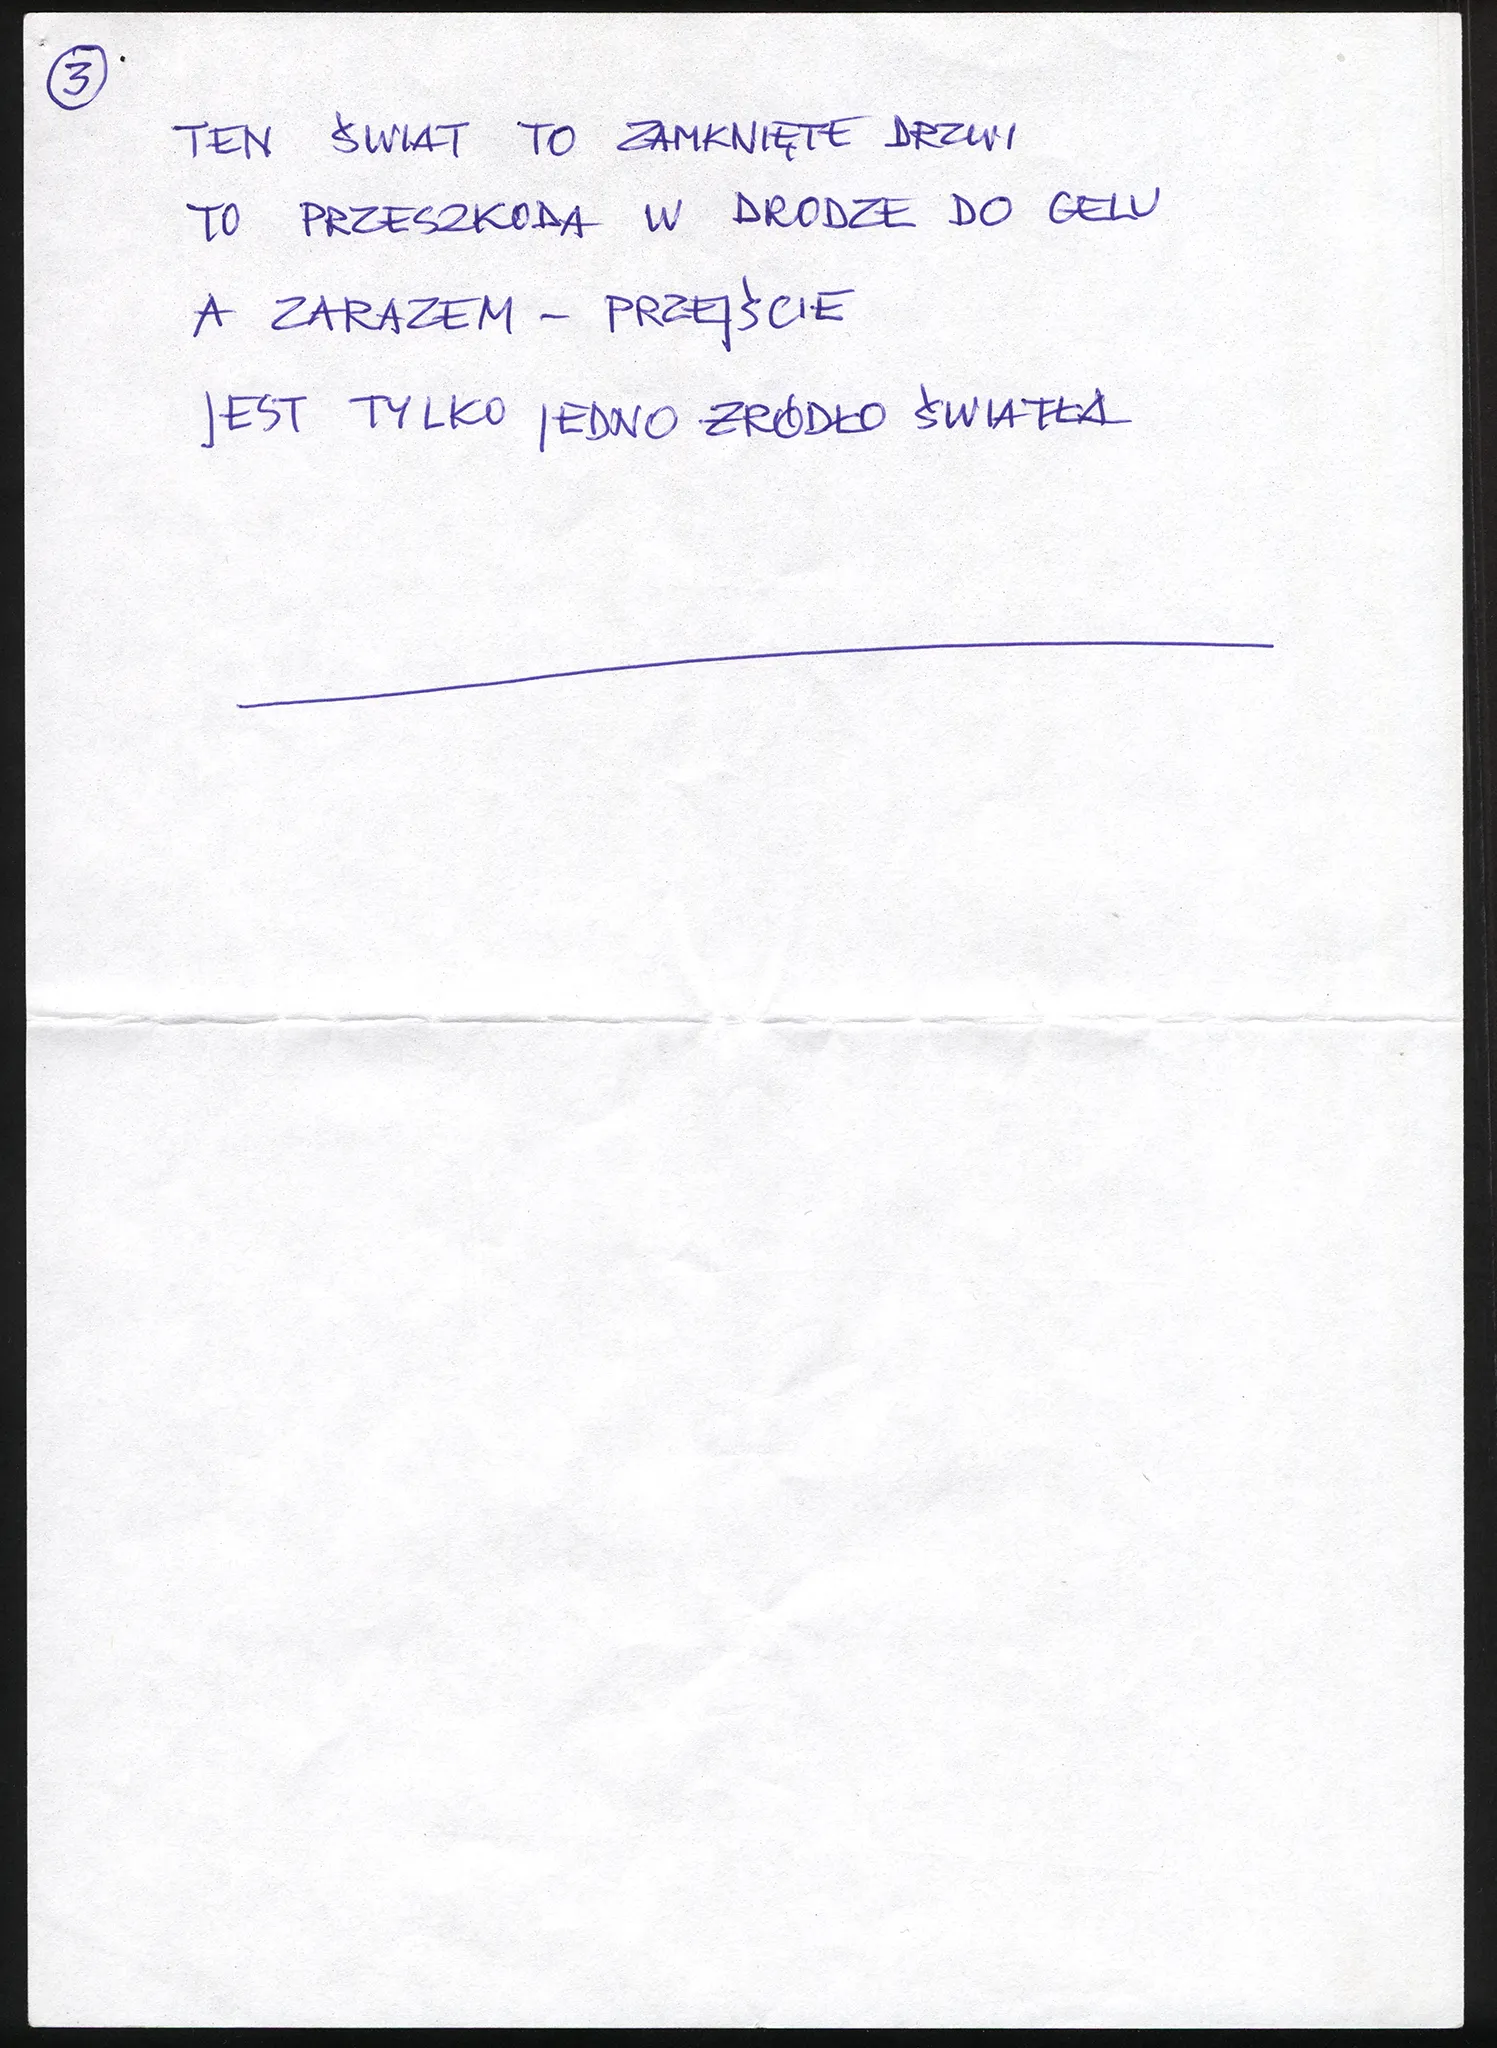 3
TEN ŚWIAT TO ZAMKNIĘTE DRZWI
TO PRZESZKODA W DRODZE DO CELU
A ZARAZEM – PRZEJŚCIE
JEST TYLKO JEDNO ŹRÓDŁO ŚWIATŁA